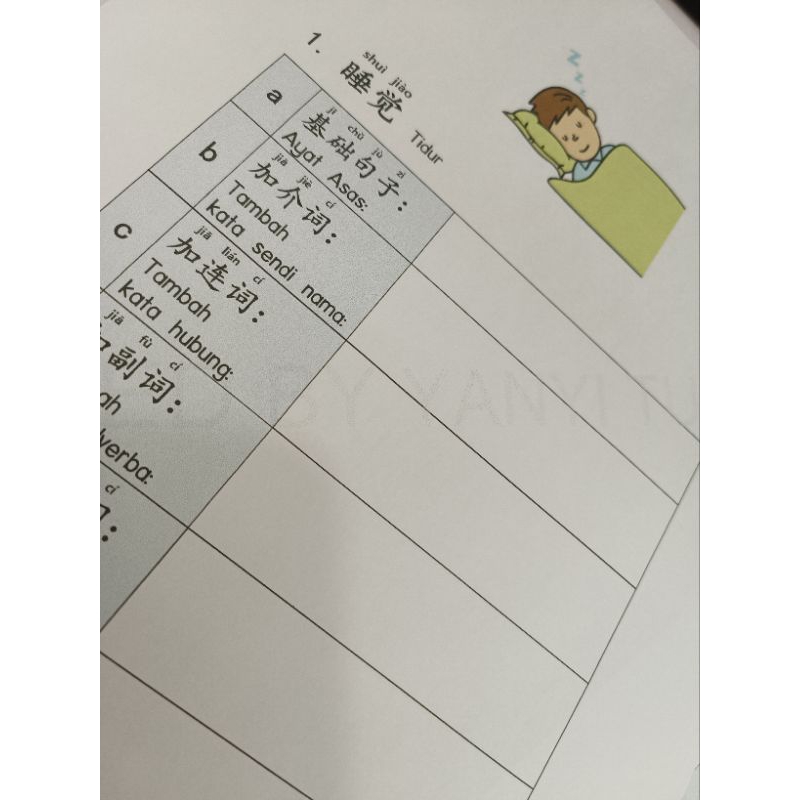 1.
shuì jiào
睡觉 Tidur
a
jī chǔ jù zi
基础句子：
Ayat Asas:
b
jiā jiè cí
加介词：
Tambah
kata sendi nama:
c
jiā lián cí
加连词：
Tambah
kata hubung:
jiā fù cí
副词：
cí
z z z